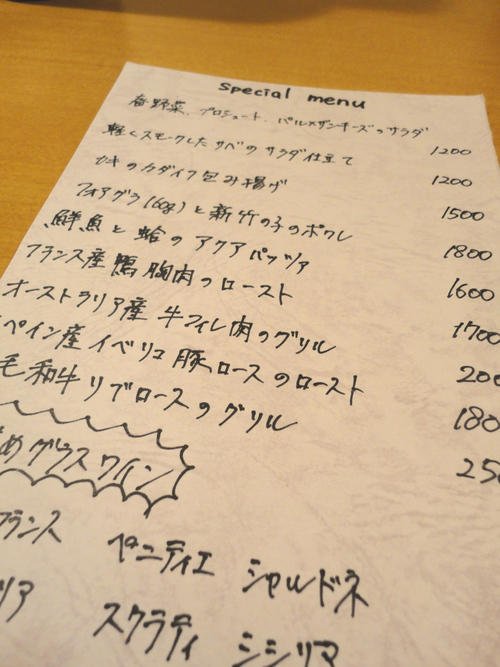 special menu
春野菜、プロシュート、パルメザンチーズのサラダ 1200
軽くスモークしたサバのサラダ仕立て 1200
カキのカダイフ包み揚げ 1500
フォアグラ(60g)と新竹の子のポワレ 1800
鮮魚と蛤のアクアパッツァ 1600
フランス産鴨胸肉のロースト 1700
オーストラリア産牛フィレ肉のグリル 200
ペイン産イベリコ豚ロースのロースト 180
毛和牛リブロースのグリル 25
めグラスワイン
フランス ペニティエ シャルドネ
リア スクラティ シシリマ